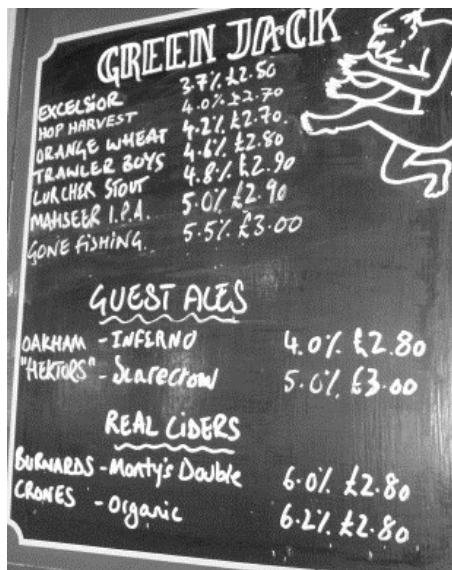 GREEN JACK
EXCELSIOR 3.7% £2.50
HOP HARVEST 4.0% £2.70
ORANGE WHEAT 4.2% £2.70.
TRAWLER BOYS 4.6% £2.80
LURCHER STOUT 4.8% £2.90
MAHSEER I.P.A. 5.0% £2.90
GONE FISHING. 5.5% £3.00
GUEST ALES
OAKHAM - INFERNO 4.0% £2.80
"HEKTORS" - Scarecrow 5.0% £3.00
REAL CiDERS
BURNARDS - Monty's Double 6.0% £2.80
CRONES - Organic 6.2% £2.80